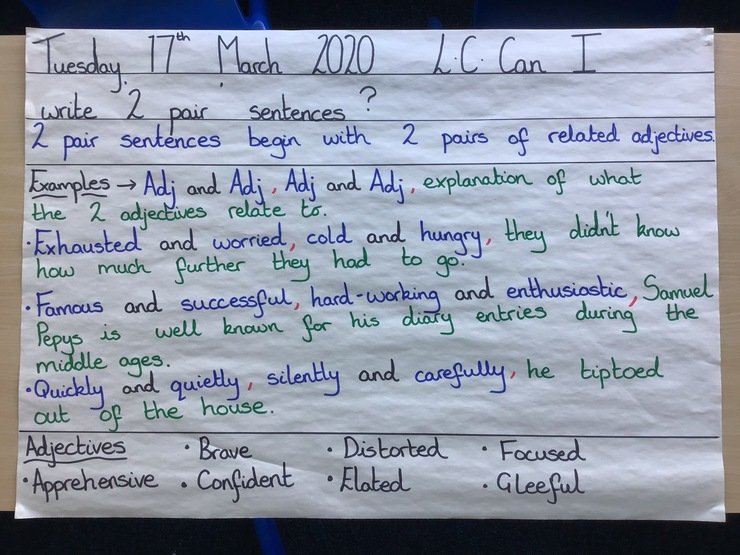 Tuesday 17th March 2020 L.C. Can I
write 2 pair sentences?
2 pair sentences begin with 2 pairs of related adjectives.
Examples → Adj and Adj, Adj and Adj, explanation of what
the 2 adjectives relate to.
• Exhausted and worried, cold and hungry, they didn't know
how much further they had to go.
• Famous and successful, hard-working and enthusiastic, Samuel
Pepys is well known for his diary entries during the
middle ages.
• Quickly and quietly, silently and carefully, he tiptoed
out of the house.
Adjectives • Brave • Distorted • Focused
• Apprehensive • Confident • Elated • Gleeful